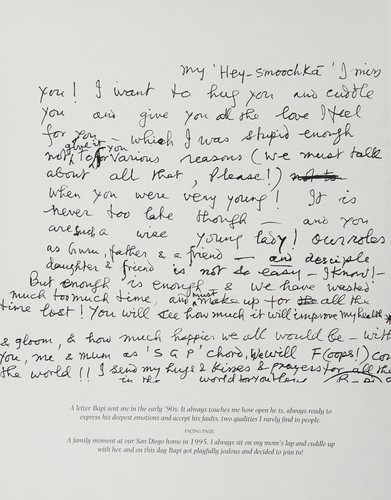 my 'Hey-smoochkā' I miss
you! I want to hug you and cuddle
you and give you all the love I feel
for you — which I was stupid enough
not to give it you for various reasons (We must talk
about all that, Please!)
when you were very young! It is
never too late though — and you
are such a wise young lady! Our roles
as Guru, father & a friend — and disciple
daughter & friend is not so easy — I know!—
But enough is enough & we have wasted
much too much time, and must make up for all the
time lost! You will see how much it will improve my health
& gloom, & how much happier we all would be — with
you, me & mum as 'S G P' chord, We will F (oops!) con
the world!! I send my hugs & kisses & prayers for all the
in the world to you
A letter Bapi sent me in the early '90s. It always touches me how open he is, always ready to
express his deepest emotions and accept his faults, two qualities I rarely find in people.
FACING PAGE:
A family moment at our San Diego home in 1995. I always sit on my mom's lap and cuddle up
with her, and on this day Bapi got playfully jealous and decided to join in!